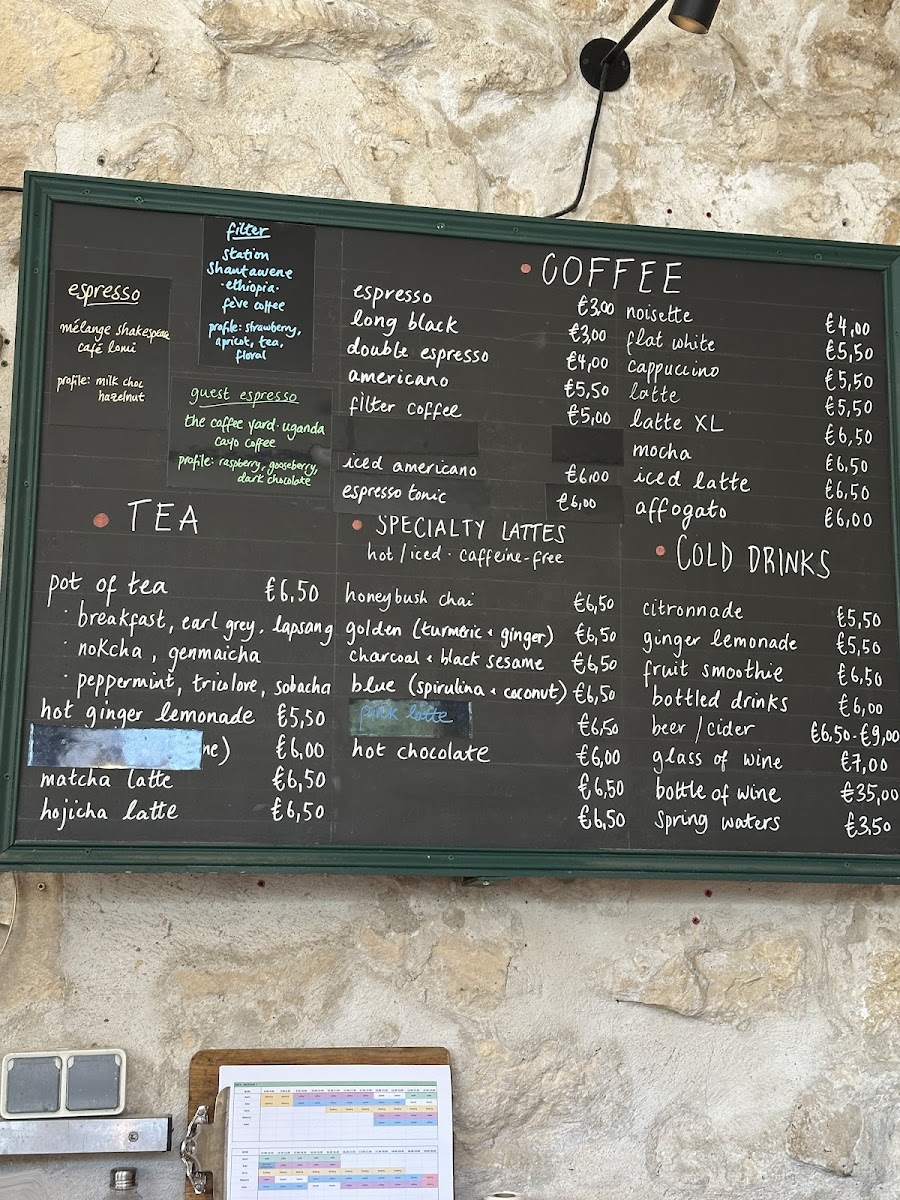 espresso
mélange shakespeare
café lomi
profile: milk choc
hazelnut
filter
station
shantawene
·ethiopia·
fève coffee
profile: strawberry,
apricot, tea,
floral
guest espresso
the coffee yard · uganda
cayo coffee
profile: raspberry, gooseberry,
dark chocolate
COFFEE
espresso €3,00
long black €3,00
double espresso €4,00
americano €5,50
filter coffee €5,00
iced americano €6,00
espresso tonic €6,00
noisette €4,00
flat white €5,50
cappuccino €5,50
latte €5,50
latte XL €6,50
mocha €6,50
iced latte €6,50
affogato €6,00
TEA
pot of tea €6,50
· breakfast, earl grey, lapsang
· nokcha, genmaicha
· peppermint, tricolore, sobacha
hot ginger lemonade €5,50
ne) €6,00
matcha latte €6,50
hojicha latte €6,50
SPECIALTY LATTES
hot/iced · caffeine-free
honeybush chai €6,50
golden (turmeric + ginger) €6,50
charcoal + black sesame €6,50
blue (spirulina + coconut) €6,50
pink latte €6,50
hot chocolate €6,00
€6,50
€6,50
COLD DRINKS
citronnade €5,50
ginger lemonade €5,50
fruit smoothie €6,50
bottled drinks €6,00
beer/cider €6,50-€9,00
glass of wine €7,00
bottle of wine €35,00
spring waters €3,50